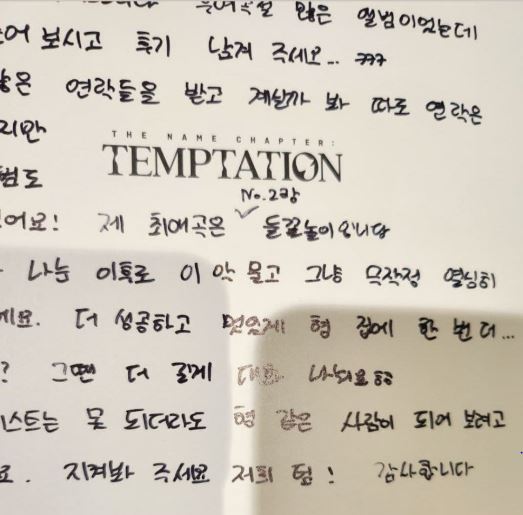 많은 앨범이었는데
보시고 후기 남겨 주세요... ㅋㅋㅋ
연락들을 받고 계실까 봐 따로 연락은
지만
THE NAME CHAPTER:
TEMPTATION
No.2랑
어요! 제 최애곡은 ✓ 들꽃놀이입니다
나눈 이후로 이 악 물고 그냥 무작정 열심히
세요. 더 성공하고 멋있게 형 집에 한 번 더...
? 그땐 더 길게 대화 나눠요 형
스트는 못 되더라도 형 같은 사람이 되어 보려고
요. 지켜봐 주세요 저희 팀! 감사합니다